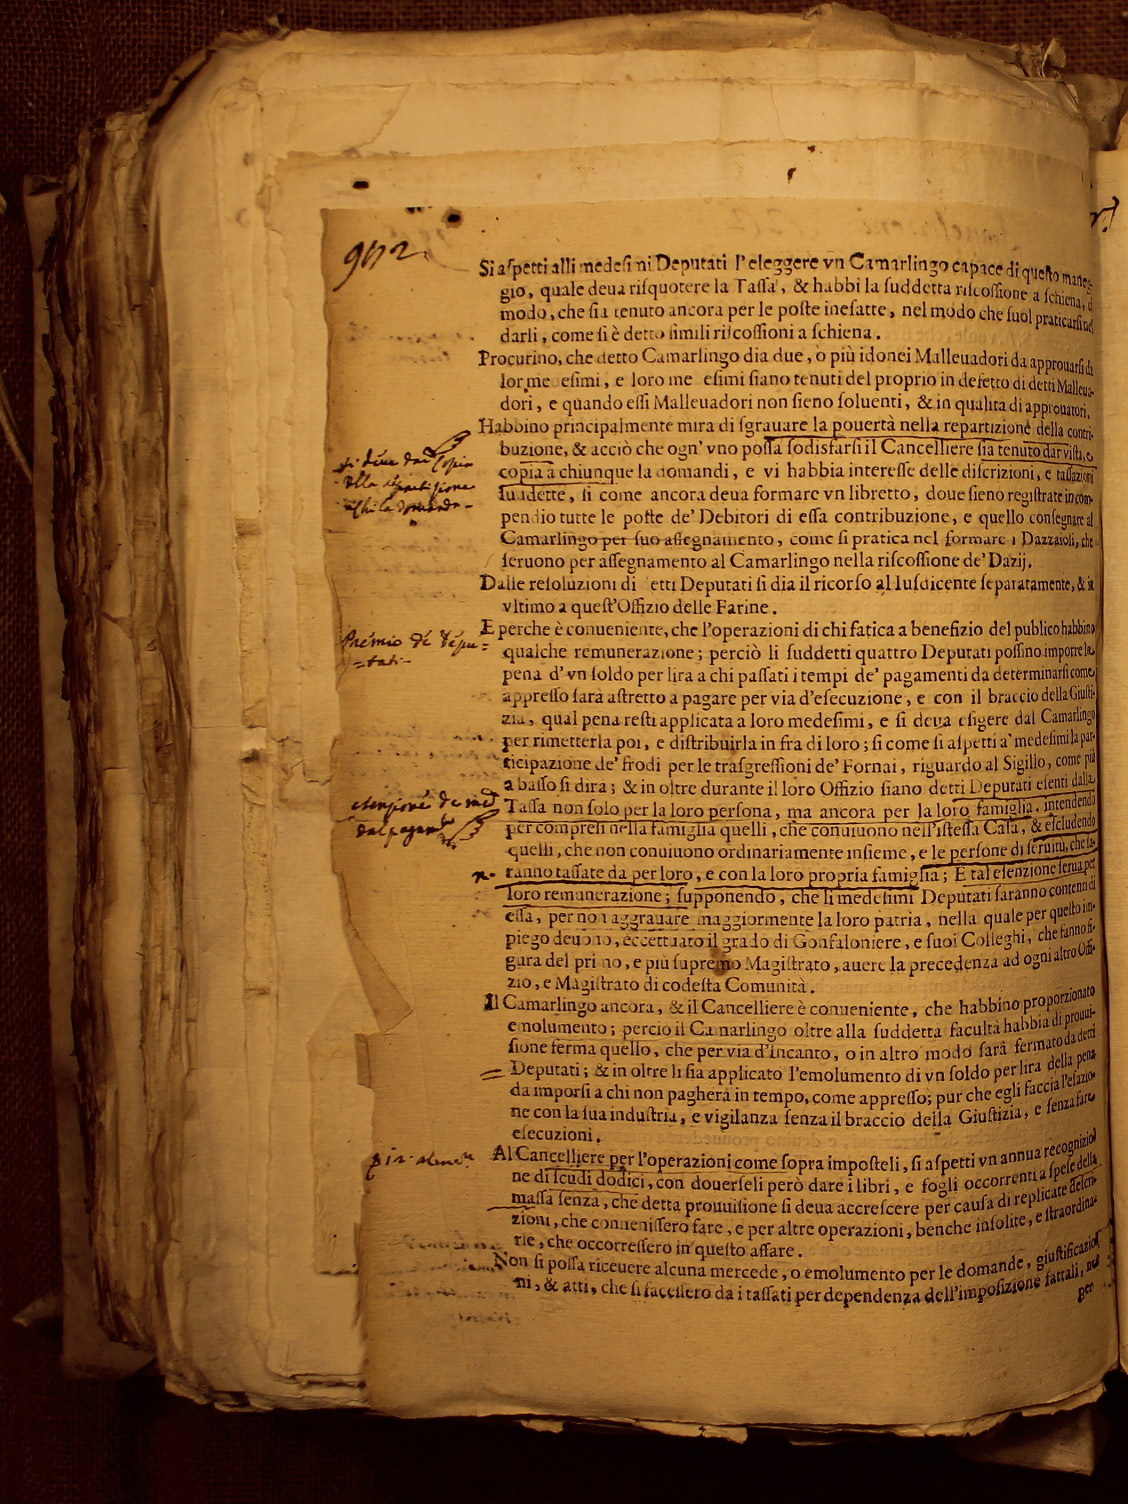 902.
Si aspetti alli medesimi Deputati l'eleggere vn Camarlingo capace di questo maneg-
gio, quale deua risquotere la Tassa, & habbi la suddetta riscossione a schiena, &
modo, che sia tenuto ancora per le poste inesatte, nel modo che suol praticarsi nel
darli, come si è detto simili riscossioni a schiena.
Procurino, che detto Camarlingo dia due, o più idonei Malleuadori da approuarsi da
lor me esimi, e loro me esimi siano tenuti del proprio in defetto di detti Malleua-
dori, e quando essi Malleuadori non sieno soluenti, & in qualita di approuatori.
Habbino principalmente mira di sgrauare la pouertà nella repartizione della contri-
buzione, & acciò che ogn' vno possa sodisfarsi il Cancelliere sia tenuto dar vista, e
copia a chiunque la domandi, e vi habbia interesse delle discrizioni, e tassazioni
suddette, si come ancora deua formare vn libretto, doue sieno registrate in com-
pendio tutte le poste de' Debitori di essa contribuzione, e quello consegnare al
Camarlingo per suo assegnamento, come si pratica nel formare i Dazzaioli, che
seruono per assegnamento al Camarlingo nella riscossione de' Dazij.
si deue dar Copia
della repartizione
a chi la domanda-
Dalle resoluzioni di etti Deputati si dia il ricorso al Iusdicente separatamente, & in
vltimo a quest'Offizio delle Farine.
E perche è conueniente, che l'operazioni di chi fatica a benefizio del publico habbino
qualche remunerazione; perciò li suddetti quattro Deputati possino imporre la
pena d' vn soldo per lira a chi passati i tempi de' pagamenti da determinarsi come
appresso sarà astretto a pagare per via d'esecuzione, e con il braccio della Giusti-
zia, qual pena resti applicata a loro medesimi, e si deua esigere dal Camarlingo
per rimetterla poi, e distribuirla in fra di loro; si come si aspetti a' medesimi la par-
ticipazione de' frodi per le trasgressioni de' Fornai, riguardo al Sigillo, come più
a basso si dira; & in oltre durante il loro Offizio siano detti Deputati esenti dalla
Tassa non solo per la loro persona, ma ancora per la loro famiglia, intendendo
per compresi nella famiglia quelli, che conuiuono nell'istessa Casa, & escludendo
quelli, che non conuiuono ordinariamente insieme, e le persone di seruitù, che sa-
ranno tassate da per loro, e con la loro propria famiglia; E tal esenzione serua per
loro remunerazione; supponendo, che li medesimi Deputati saranno contenti di
essa, per non aggrauare maggiormente la loro patria, nella quale per questo im-
piego deuono, eccettuato il grado di Gonfaloniere, e suoi Colleghi, che fanno fi-
gura del pri no, e più supremo Magistrato, auere la precedenza ad ogni altro Offi-
zio, e Magistrato di codesta Comunità.
Premio de' Depu=
=tati-
esenzione de med
dal pagam
Il Camarlingo ancora, & il Cancelliere è conueniente, che habbino proporzionato
emolumento; percio il Ca narlingo oltre alla suddetta facultà habbia di prouui-
sione ferma quello, che per via d'Incanto, o in altro modo sarà fermato da detti
Deputati; & in oltre li sia applicato l'emolumento di vn soldo per lira della pena
da imporsi a chi non pagherà in tempo, come appresso; pur che egli faccia l'esazio-
ne con la sua industria, e vigilanza senza il braccio della Giustizia, e senza fare
esecuzioni.
Al Cancelliere per l'operazioni come sopra imposteli, si aspetti vn annua recognizio-
ne di scudi dodici, con douerseli però dare i libri, e fogli occorrenti a spese della
massa senza, che detta prouuisione si deua accrescere per causa di replicate descri-
zioni, che conuenissero fare, e per altre operazioni, benche insolite, e straordina-
rie, che occorressero in questo affare.
Non si possa riceuere alcuna mercede, o emolumento per le domande, giustificazio-
ni, & atti, che si facessero da i tassati per dependenza dell'imposizione fattali, ne
per